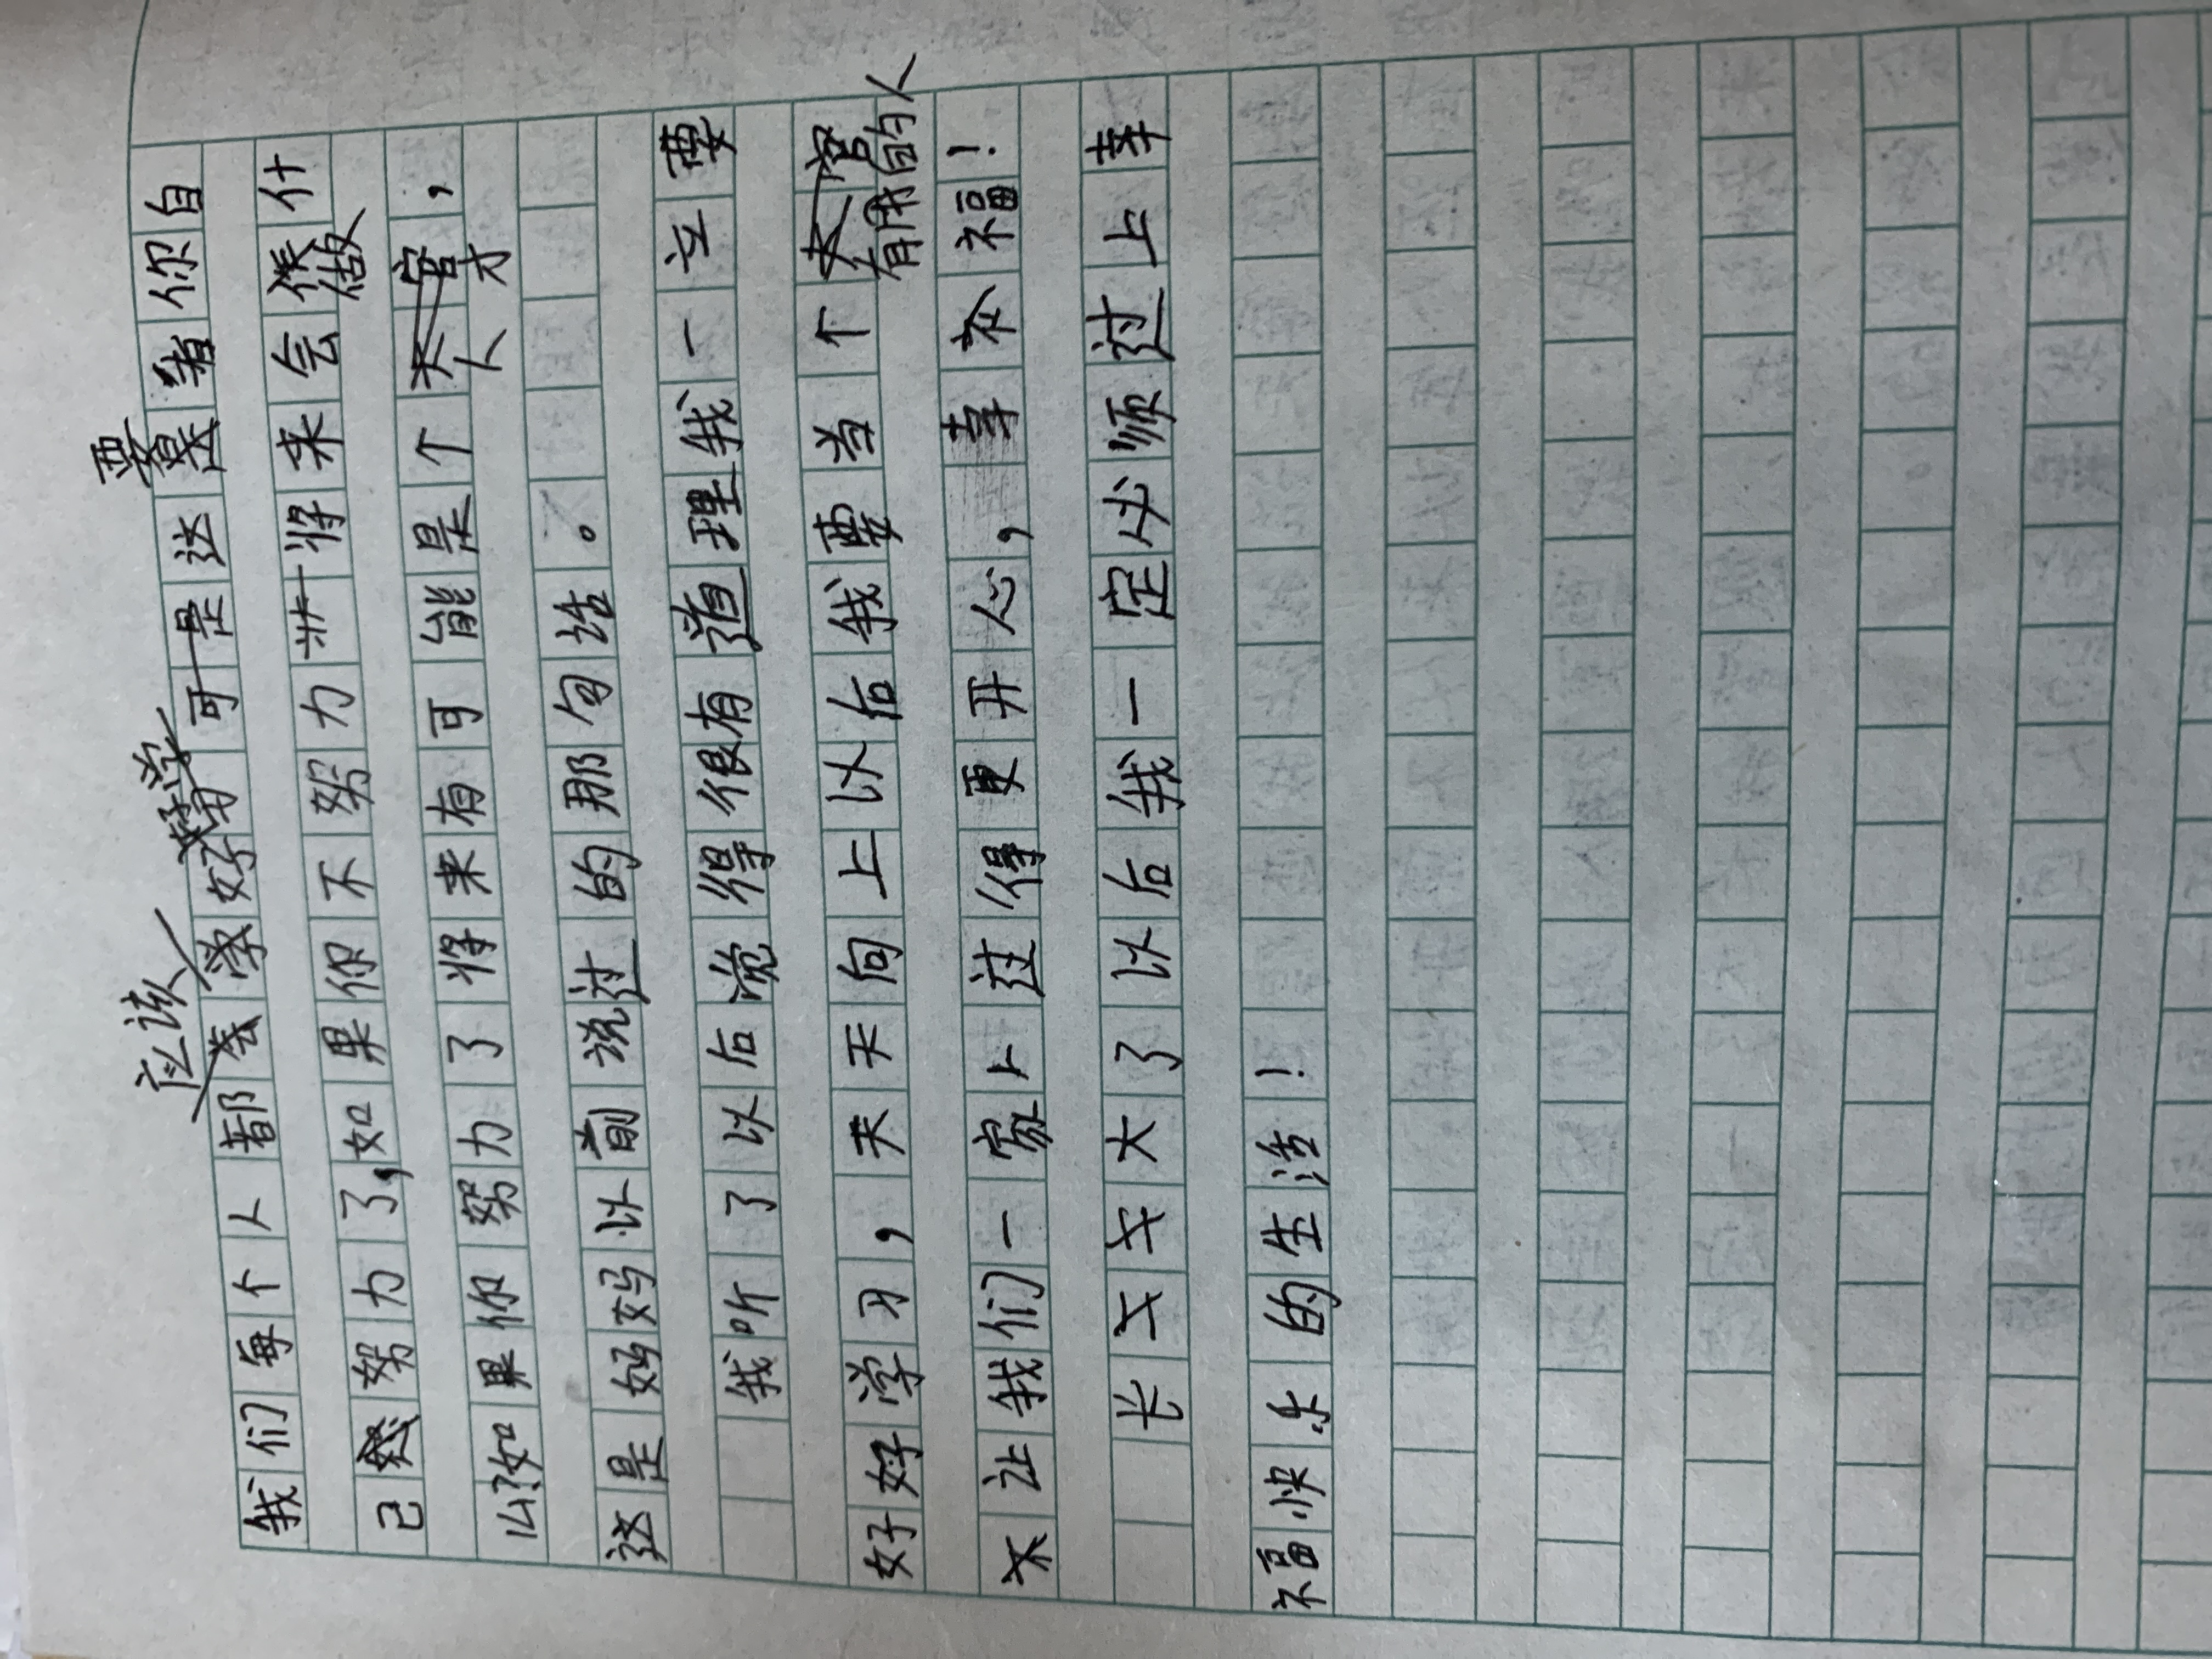 应该 学 要
我们每个人都会学好可是这是看你自
己努力了,如果你不努力将来会做什
么?如果你努力了将来有可能是个大官,
人才
这是妈妈以前说过的那句话。
我听了以后觉得很有道理我一定要
好好学习,天天向上以后我要当个大官
有用的人
来让我们一家人过得更开心,幸福!
长大了以后我一定必须过上幸
福快乐的生活!